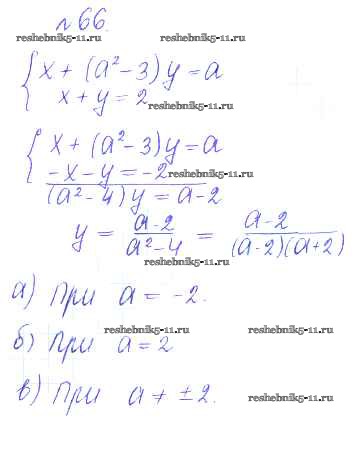 №66.
reshebnik5-11.ru reshebnik5-11.ru
{ x + (a² - 3)y = a
x + y = 2 reshebnik5-11.ru
{ x + (a² - 3)y = a
-x - y = -2 reshebnik5-11.ru
(a² - 4)y = a - 2
y = (a-2)/(a²-4) = (a-2)/((a-2)(a+2))
reshebnik5-11.ru
а) При a = -2.
reshebnik5-11.ru reshebnik5-11.ru
б) При a = 2
в) При a ≠ ± 2. reshebnik5-11.ru